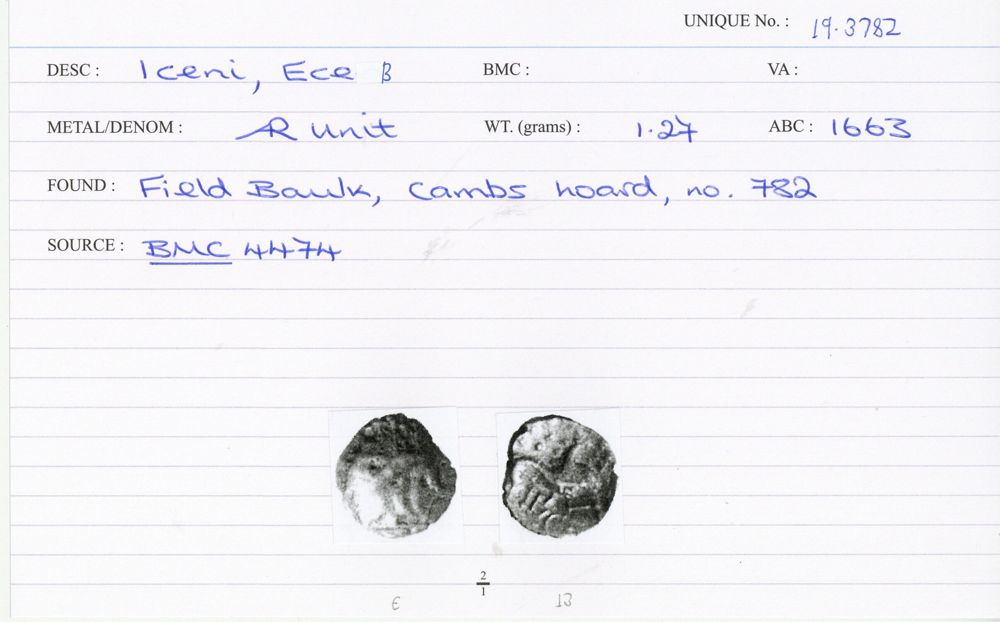 UNIQUE No. : 19.3782
DESC : Iceni, Ece B BMC : VA :
METAL/DENOM : AR Unit WT. (grams) : 1.27 ABC : 1663
FOUND : Field Baulk, Cambs hoard, no. 782
SOURCE : BMC 4474
2
1
E 13